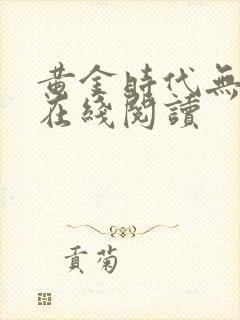 黄金時代無
在綫閱讀
貢菊